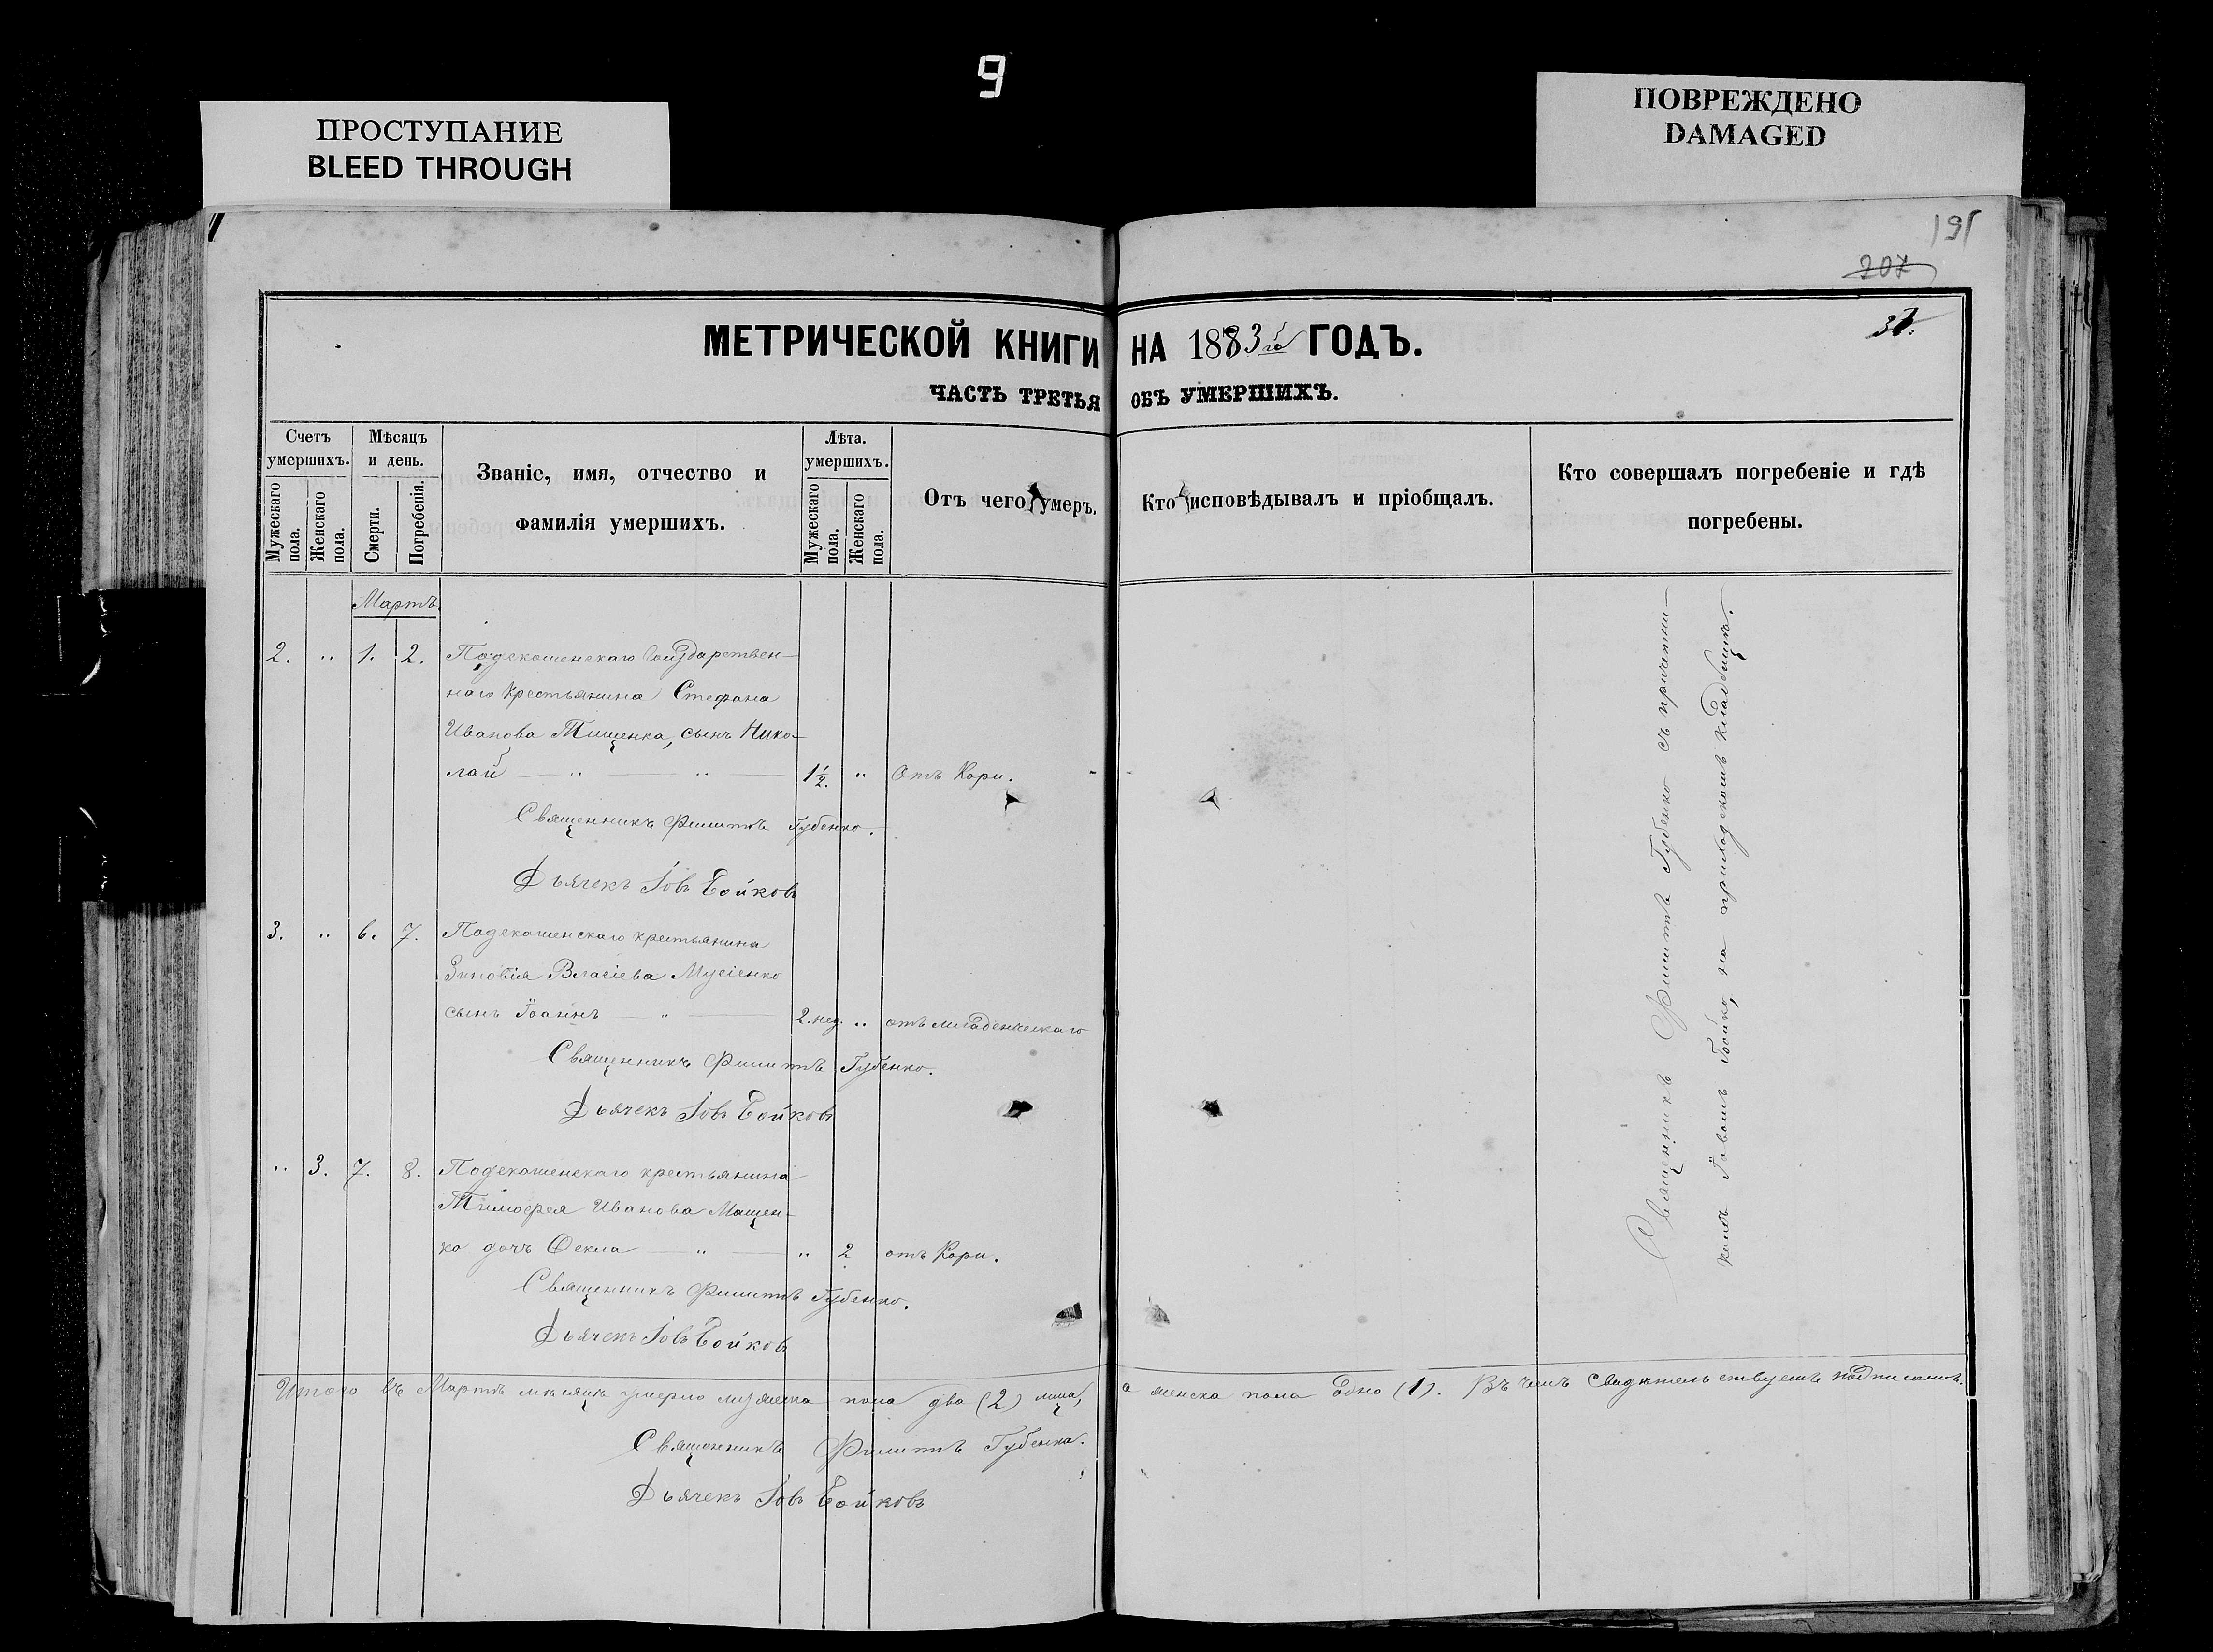 9
ПРОСТУПАНИЕ
BLEED THROUGH
ПОВРЕЖДЕНО
DAMAGED
191
207
МЕТРИЧЕСКОЙ КНИГИ НА 1883 го ГОДЪ.
ЧАСТЬ ТРЕТЬЯ ОБЪ УМЕРШИХЪ.
Счетъ умершихъ.
Мужескаго пола.
Женскаго пола.
Мѣсяцъ и день.
Смерти.
Погребенія.
Званіе, имя, отчество и
фамилія умершихъ.
Лѣта. умершихъ.
Мужескаго пола.
Женскаго пола.
Отъ чего умеръ.
Кто исповѣдывалъ и пріобщалъ.
Кто совершалъ погребеніе и гдѣ
погребены.
Мартъ.
2. „ 1. 2. Подскошенскаго Государствен-
наго Крестьянина Стефана
Иванова Тищенка, сынъ Нико-
лай — „ — „ — 1½. „ Отъ Кори.
Священникъ Филиппъ Губенко.
Дьячекъ Іовъ Бойковъ
3. „ 6. 7. Подскошенскаго крестьянина
Зиновія Власіева Мусіенко
сынъ Іоаннъ — „ — 2. нед. „ отъ младенческаго
Священникъ Филиппъ Губенко.
Дьячекъ Іовъ Бойковъ
„ 3. 7. 8. Подскошенскаго крестьянина
Тимофея Иванова Мащен-
ко дочь Ѳекла — „ — „ 2 отъ Кори.
Священникъ Филиппъ Губенко.
Дьячекъ Іовъ Бойковъ
Священникъ Филиппъ Губенко съ причетни-
комъ Іовомъ Бойко, на приходскомъ кладбищѣ.
Итого въ Мартѣ мѣсяцѣ умерло мужеска пола два (2) лица, а женска пола одно (1). Въ чемъ свидѣтельствуемъ подписомъ.
Священникъ Филиппъ Губенко.
Дьячекъ Іовъ Бойковъ